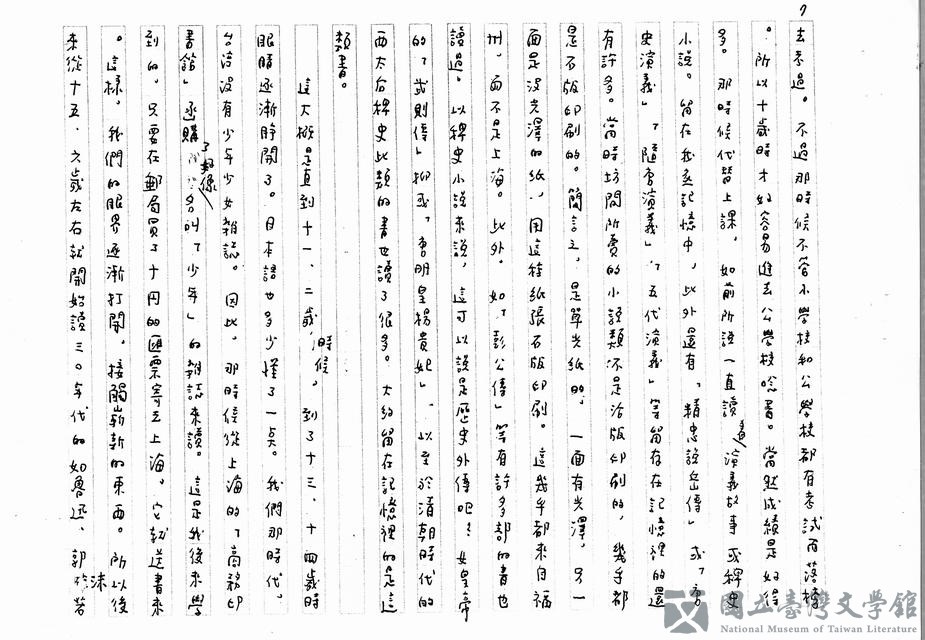 7
去考過。不過那時候不管小學校和公學校都有考試而落榜
。所以十歲時才好容易進去公學校唸書。當然成績是好得
多。那時候代替上課，如前所說一直讀着演義故事或稗史
小說。留在我的記憶中，此外還有「精忠說岳傳」或「東
史演義」「隋唐演義」「五代演義」等留存在記憶裡的還
有許多。當時坊間所賣的小說類不是活版印刷的，幾乎都
是石版印刷的。簡言之，是單光紙的，一面有光澤，另一
面是沒光澤的紙，用這種紙張石版印刷。這幾乎都來自福
州，而不是上海。此外，如「彭公傳」等有許多部的書也
讀過。以稗史小說來說，這可以說是歷史外傳吧？女皇帝
的「武則傳」抑或「唐明皇楊貴妃」，以至於清朝時代的
西太后稗史此類的書也讀了很多。大約留在記憶裡的是這
類書。
這大概是直到十一、二歲時候，到了十三、十四歲時
眼睛逐漸睜開了。日本語也多少懂了一點。我們那時代，
台灣沒有少年少女雜誌。因此，那時候從上海的「商務印
書館」函購了好像名叫「少年」的雜誌來讀。這是我後來學
到的。只要在郵局買了十円的匯票寄去上海，它就送書來
。這樣，我們的眼界逐漸打開，接觸嶄新的東西。所以後
來從十五、六歲左右就開始讀三〇年代的如魯迅、郭沫若
國立臺灣文學館
National Museum of Taiwan Literature